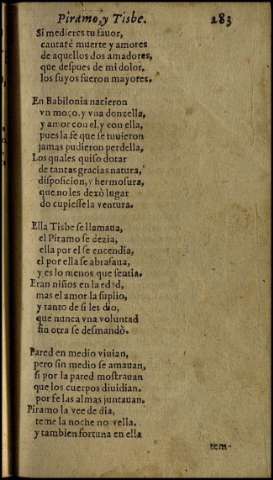 Piramo, y Tisbe. 283
Si medieres tu fauor,
cantarè muerte y amores
de aquellos dos amadores,
que despues de mi dolor,
los suyos fueron mayores.
En Babilonia nacieron
vn moço, y vna donzella,
y amor con el, y con ella,
pues la fe que se tuuieron
jamas pudieron perdella,
Los quales quiso dotar
de tantas gracias natura,
disposicion, y hermosura,
que no les dexò lugar
do cupiesse la ventura.
Ella Tisbe se llamaua,
el Piramo se dezia,
ella por el se encendia,
el por ella se abrasaua,
y es lo menos que sentia.
Eran niños en la edad,
mas el amor la suplio,
y tanto de si les dio,
que nunca vna voluntad
sin otra se desmandò.
Pared en medio viuian,
pero sin medio se amauan,
si por la pared mostrauan
que los cuerpos diuidian,
por fe las almas juntauan.
Piramo la vee de dia,
teme la noche no vella,
y tambien fortuna en ella
tem-